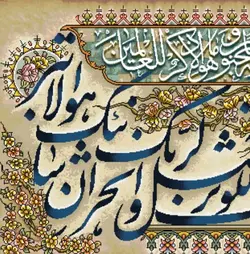 وما هو الا ذكر للعالمين
شانئك هو الابتر
فصل لربك وانحر ان